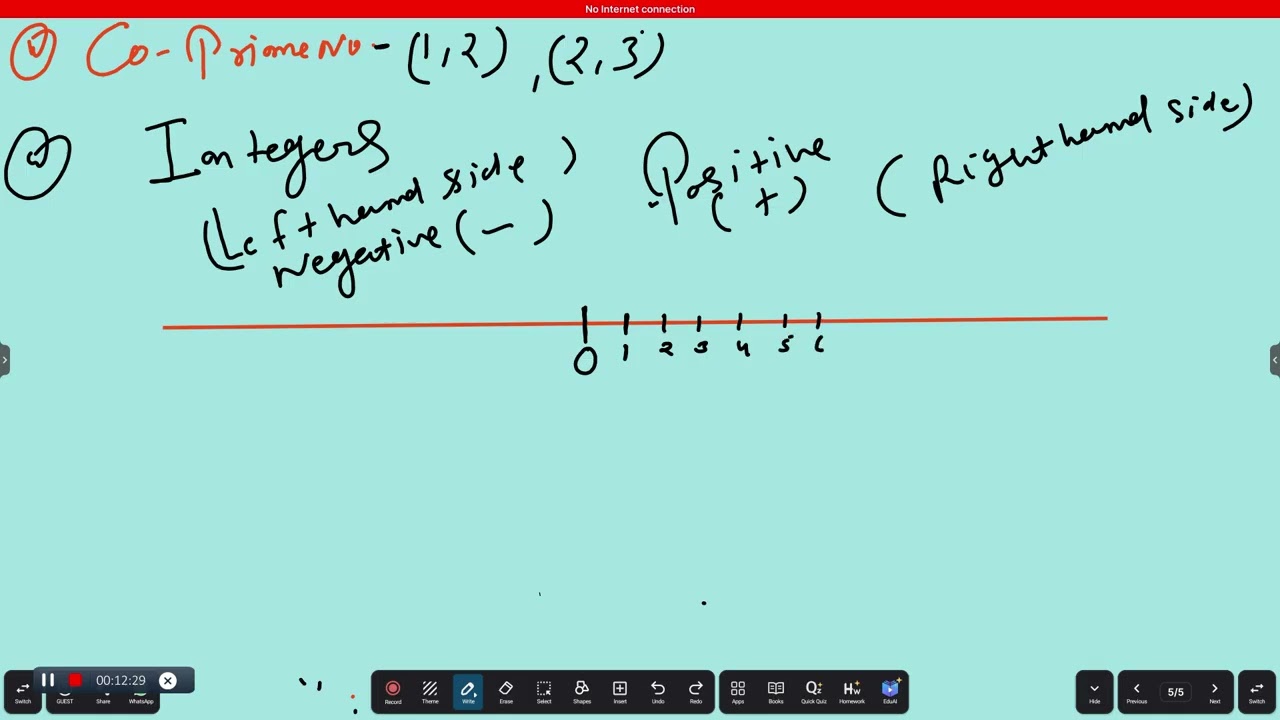 No Internet connection
Co-Prime No - (1,2) , (2,3)
Integers
(Left hand side )
Negative (-)
Positive (Right hand side)
(+)
0 1 2 3 4 5 6
00:12:29
Switch GUEST Share WhatsApp Record Theme Write Erase Select Shapes Insert Undo Redo Apps Books Quick Quiz Homework EduAI Hide Previous 5/5 Next Switch